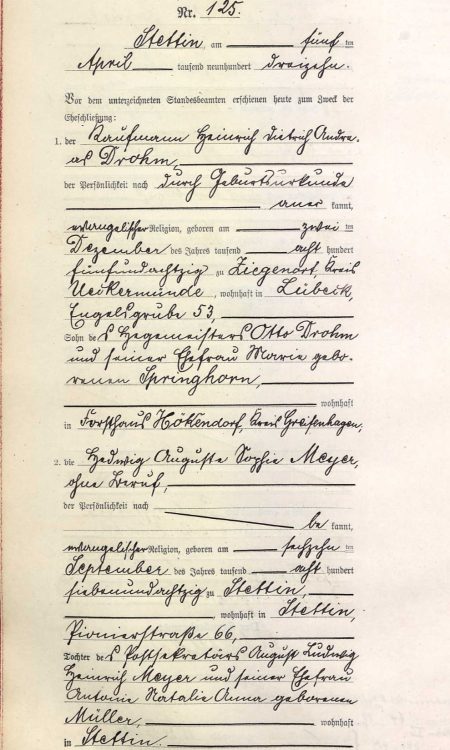 Nr. 125.
Stettin am fünf ten
April tausend neunhundert dreizehn.
Vor dem unterzeichneten Standesbeamten erschienen heute zum Zweck der
Eheschließung:
1. der Kaufmann Heinrich Dietrich Andre-
as Drohm,
der Persönlichkeit nach durch Geburtsurkunde
aner kannt,
evangelischer Religion, geboren am zwei ten
Dezember des Jahres tausend acht hundert
fünfundachtzig zu Ziegenort, Kreis
Ueckermünde, wohnhaft in Lübeck,
Engelsgrube 53,
Sohn des Hegemeisters Otto Drohm
und seiner Ehefrau Marie gebo-
renen Springhorn,
wohnhaft
in Forsthaus Hökendorf, Kreis Greifenhagen;
2. die Hedwig Auguste Sophie Meyer,
ohne Beruf,
der Persönlichkeit nach
be kannt,
evangelischer Religion, geboren am sechzehn ten
September des Jahres tausend acht hundert
siebenundachtzig zu Stettin,
, wohnhaft in Stettin,
Pionierstraße 66,
Tochter des Postsekretärs August Ludwig
Heinrich Meyer und seiner Ehefrau
Antonie Natalie Anna geborenen
Müller, wohnhaft
in Stettin.